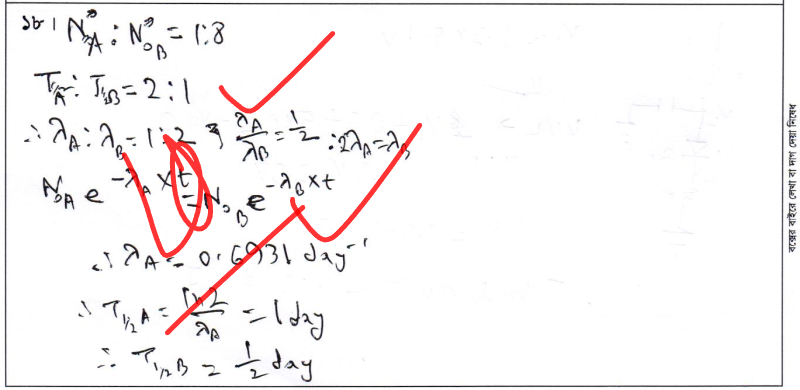 ১৮। N₀A : N₀B = 1:8
T½A : T½B = 2:1
∴ λA : λB = 1:2 ⇒ λA/λB = 1/2 ∴ 2λA = λB
N₀A e^(-λA × t) = N₀B e^(-λB × t)
∴ λA = 0.6931 day⁻¹
∴ T½A = ln2/λA = 1 day
∴ T½B = 1/2 day
বক্সের বাইরে লেখা বা দাগ দেয়া নিষেধ